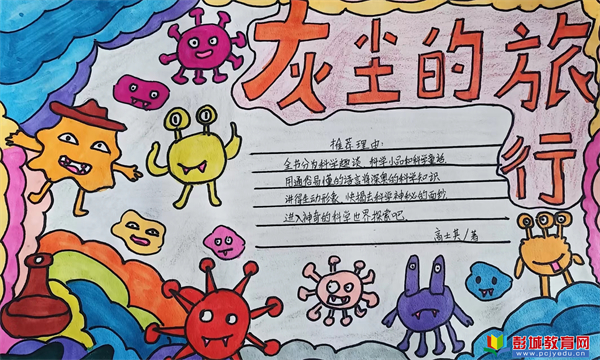 灰尘的旅行
推荐理由:
全书分为科学趣谈、科学小品和科学童话
用通俗易懂的语言将深奥的科学知识
讲得生动形象、快揭去科学神秘的面纱
进入神奇的科学世界探索吧。
高士其/著
彭城教育网
www.pcjyedu.cn